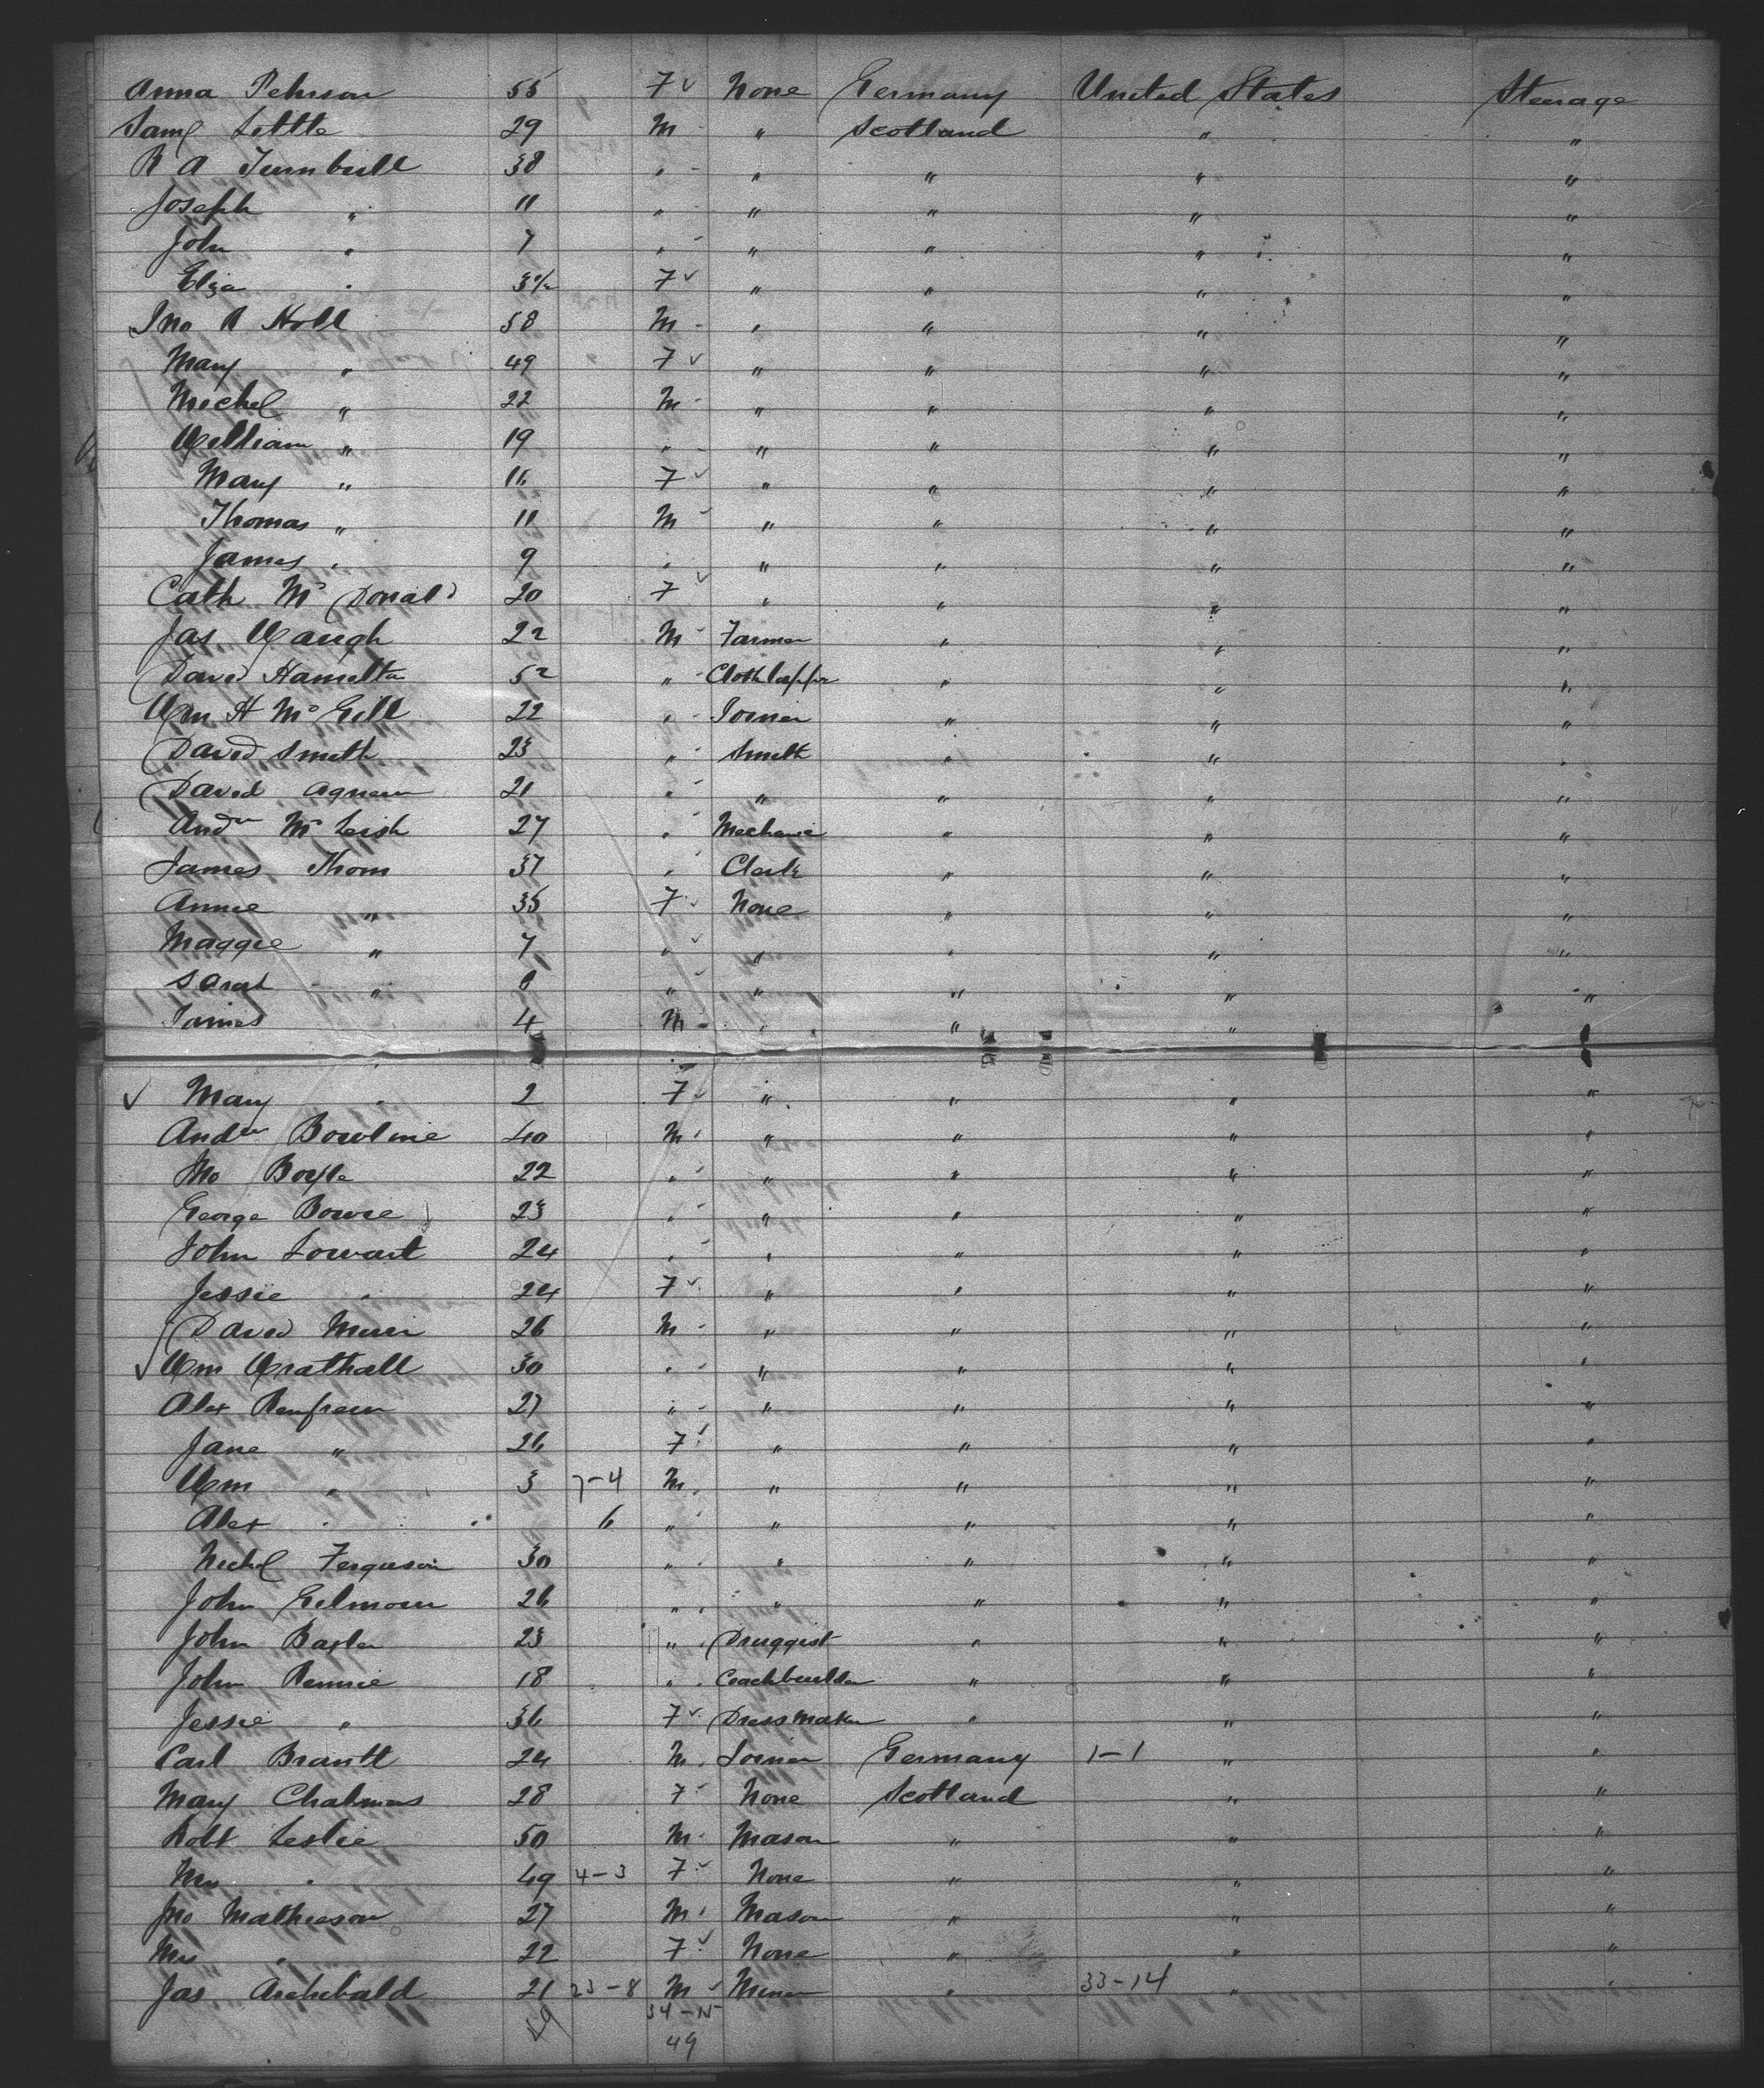 Anna Pehrson 55 F None Germany United States Steerage
Saml Little 29 M " Scotland " "
R A Turnbull 38 " " " " "
Joseph " 11 " " " " "
John " 7 " " " " "
Eliza " 3 F " " " "
Jno R Holl 58 M " " " "
Mary " 49 F " " " "
Michel " 22 M " " " "
William " 19 " " " " "
Mary " 16 F " " " "
Thomas " 11 M " " " "
James " 9 " " " " "
Cath Mc Donald 20 F " " " "
Jas. Waugh 22 M Farmer " " "
David Hamilton 52 " Clothlapper " " "
Wm H McGill 22 " Joiner " " "
David Smith 23 " Smith " " "
David Agnew 21 " " " " "
Andw McLeish 27 " Mechanic " " "
James Thom 37 " Clerk " " "
Annie " 35 F None " " "
Maggie " 7 " " " " "
Sarah " 6 " " " " "
James 4 M " " " "
Mary " 2 F " " " "
Andw Bowline 40 M " " " "
Jno Boyle 22 " " " " "
George Bowie 23 " " " " "
John Stewart 24 " " " " "
Jessie " 24 F " " " "
David Muir 26 M " " " "
Wm Wrathall 30 " " " " "
Alex Renfrew 27 " " " " "
Jane " 26 F " " " "
Wm " 3 7-4 M " " " "
Alex " 6 " " " " "
Michl Ferguson 30 " " " " "
John Gilmour 26 " " " " "
John Baxter 23 " Druggist " " "
John Rennie 18 " Coachbuilder " " "
Jessie " 36 F Dressmaker " " "
Carl Brantt 24 M Joiner Germany 1-1 " "
Mary Chalmers 28 F None Scotland " "
Robt Leslie 50 M Mason " " "
Mrs " 49 4-3 F None " " "
Jno Mathieson 27 M Mason " " "
Mrs " 22 F None " " "
Jas Archibald 21 23-8 M Miner " 33-14 " "
49 34-15
49